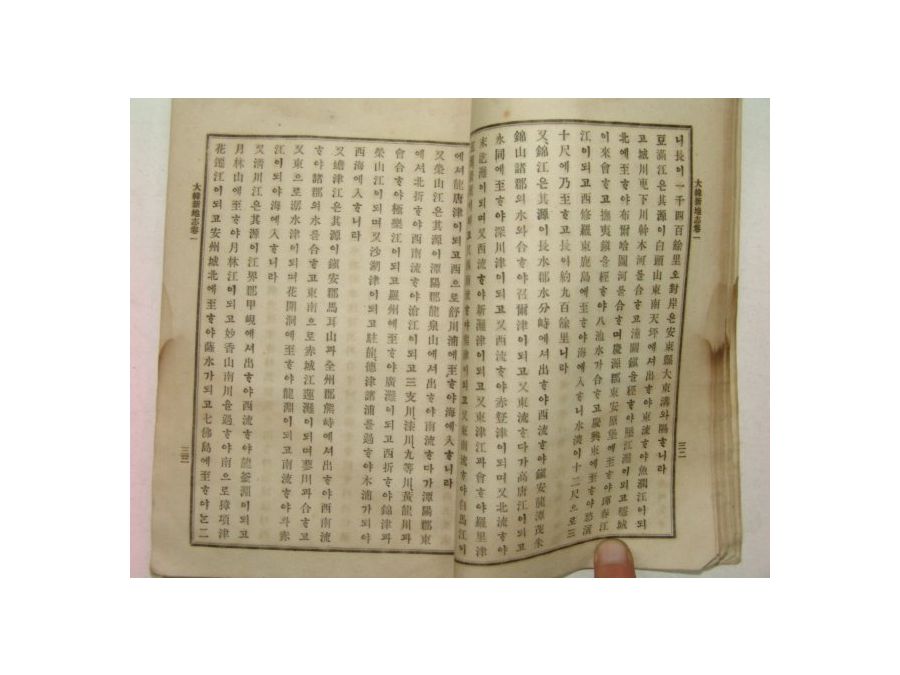 大韓新地志卷一
니長이一千四百餘里오對岸은安東縣大東溝와隔ᄒᆞ니라
豆滿江은其源이白頭山東南天坪에셔出ᄒᆞ야東流ᄒᆞ야魚潤江이되
고城川東下川幹木河를合ᄒᆞ고潼關鎭을經ᄒᆞ야壓江灘이되고穩城
北에至ᄒᆞ야布爾哈圖河를合ᄒᆞ며慶源郡東安原堡에至ᄒᆞ야琿春江
이來會ᄒᆞ고撫夷鎭을經ᄒᆞ야八池水가合ᄒᆞ고慶興東에至ᄒᆞ야
江이되고西修羅東鹿島에至ᄒᆞ야海에入ᄒᆞ니水淺이十二尺으로三
十尺에乃至ᄒᆞ고長이約九百餘里니라
又、錦江은其源이長水郡水分峙에셔出ᄒᆞ야西流ᄒᆞ야鎭安龍潭茂朱
錦山諸郡의水와合ᄒᆞ야召爾津이되고又東流ᄒᆞ다가高唐江이되고
永同에至ᄒᆞ야深川이되고又西流ᄒᆞ야赤登津이되며又北流ᄒᆞ야
末訖灘이되며又西流ᄒᆞ야新灘津이되고又東津江과會ᄒᆞ야羅里津
이되고又西南流ᄒᆞ야
津이되고又東南流ᄒᆞ야白馬江이
에셔龍唐津이되고西으로舒川浦에至ᄒᆞ야海에入ᄒᆞ니라
又榮山江은其源이潭陽郡龍泉山에셔出ᄒᆞ야南流ᄒᆞ다가潭陽郡東
에셔北折ᄒᆞ야西南流ᄒᆞ야滄江이되고三支川漆川九等川黃龍川과
會合ᄒᆞ야極樂江이되고羅州에至ᄒᆞ야廣灘이되고西折ᄒᆞ야錦津과
榮山江이되며又沙湖津이되고駐龍德津諸浦를過ᄒᆞ야木浦가되야
西海에入ᄒᆞ니라
又蟾津江은其源이鎭安郡馬耳山과全州郡熊峙에셔出ᄒᆞ야西南流
ᄒᆞ야諸郡의水를合ᄒᆞ고東南으로赤城江蓮灘이되며蓼川과合ᄒᆞ고
又東으로潺水津이되며花開洞에至ᄒᆞ야龍淵이되고南流ᄒᆞ야와赤
江이되야海에入ᄒᆞ니라
又淸川江은其源이江界郡甲峴에셔出ᄒᆞ야西流ᄒᆞ야龍釜淵이되고
月林山에至ᄒᆞ야月林江이되고妙香山南川을過ᄒᆞ야南으로獐項津
花遷江이되고安州城北에至ᄒᆞ야薩水가되고七佛島에至ᄒᆞ야ᄂᆞᆫ二
大韓新地志卷一